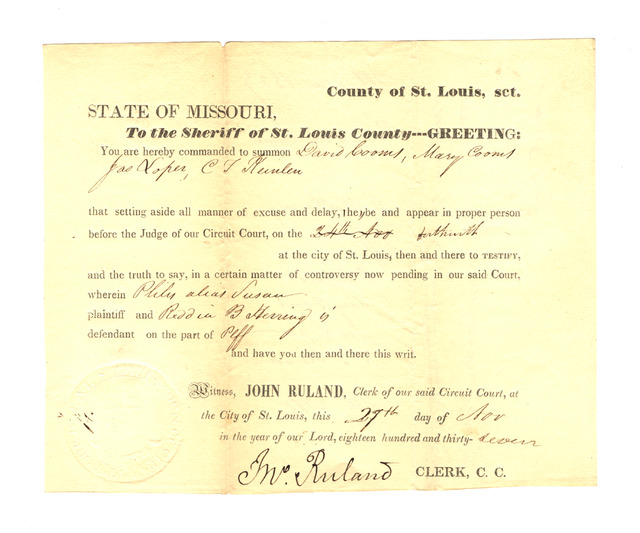 County of St. Louis, sct.
STATE OF MISSOURI,
To the Sheriff of St. Louis County---GREETING:
You are hereby commanded to summon David Cooms, Mary Cooms
Jas Loper, C T
that setting aside all manner of excuse and delay, they be and appear in proper person
before the Judge of our Circuit Court, on the 24th Nov forthwith
at the city of St. Louis, then and there to TESTIFY,
and the truth to say, in a certain matter of controversy now pending in our said Court,
wherein alias Susan
plaintiff and Reddin B Herring is
defendant on the part of Plff
and have you then and there this writ.
Witness, JOHN RULAND, Clerk of our said Circuit Court, at
the City of St. Louis, this 27th day of Nov
in the year of our Lord, eighteen hundred and thirty-seven
Jno. Ruland CLERK, C. C.